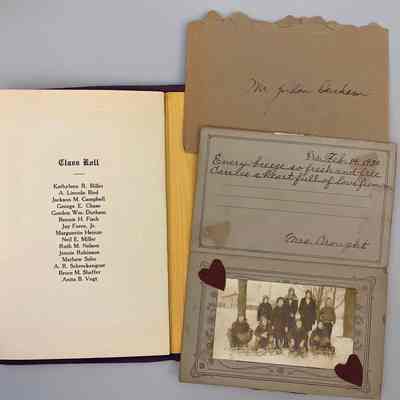 Class Roll
Kathyleen R. Biller
A. Lincoln Bird
Jackson M. Campbell
George E. Chase
Gordon Wm. Durham
Bennie H. Finch
Jay Force, Jr.
Marguerite Heinze
Neil E. Miller
Ruth M. Nelson
Jennie Robinson
Mathew Soltz
A. R. Schreckengost
Bruce M. Shaffer
Anita B. Vogt
Mr Durham
Feb. 14, 1930
Every breeze so fresh and free
Carries a heart full of love from me
Mrs. Drought